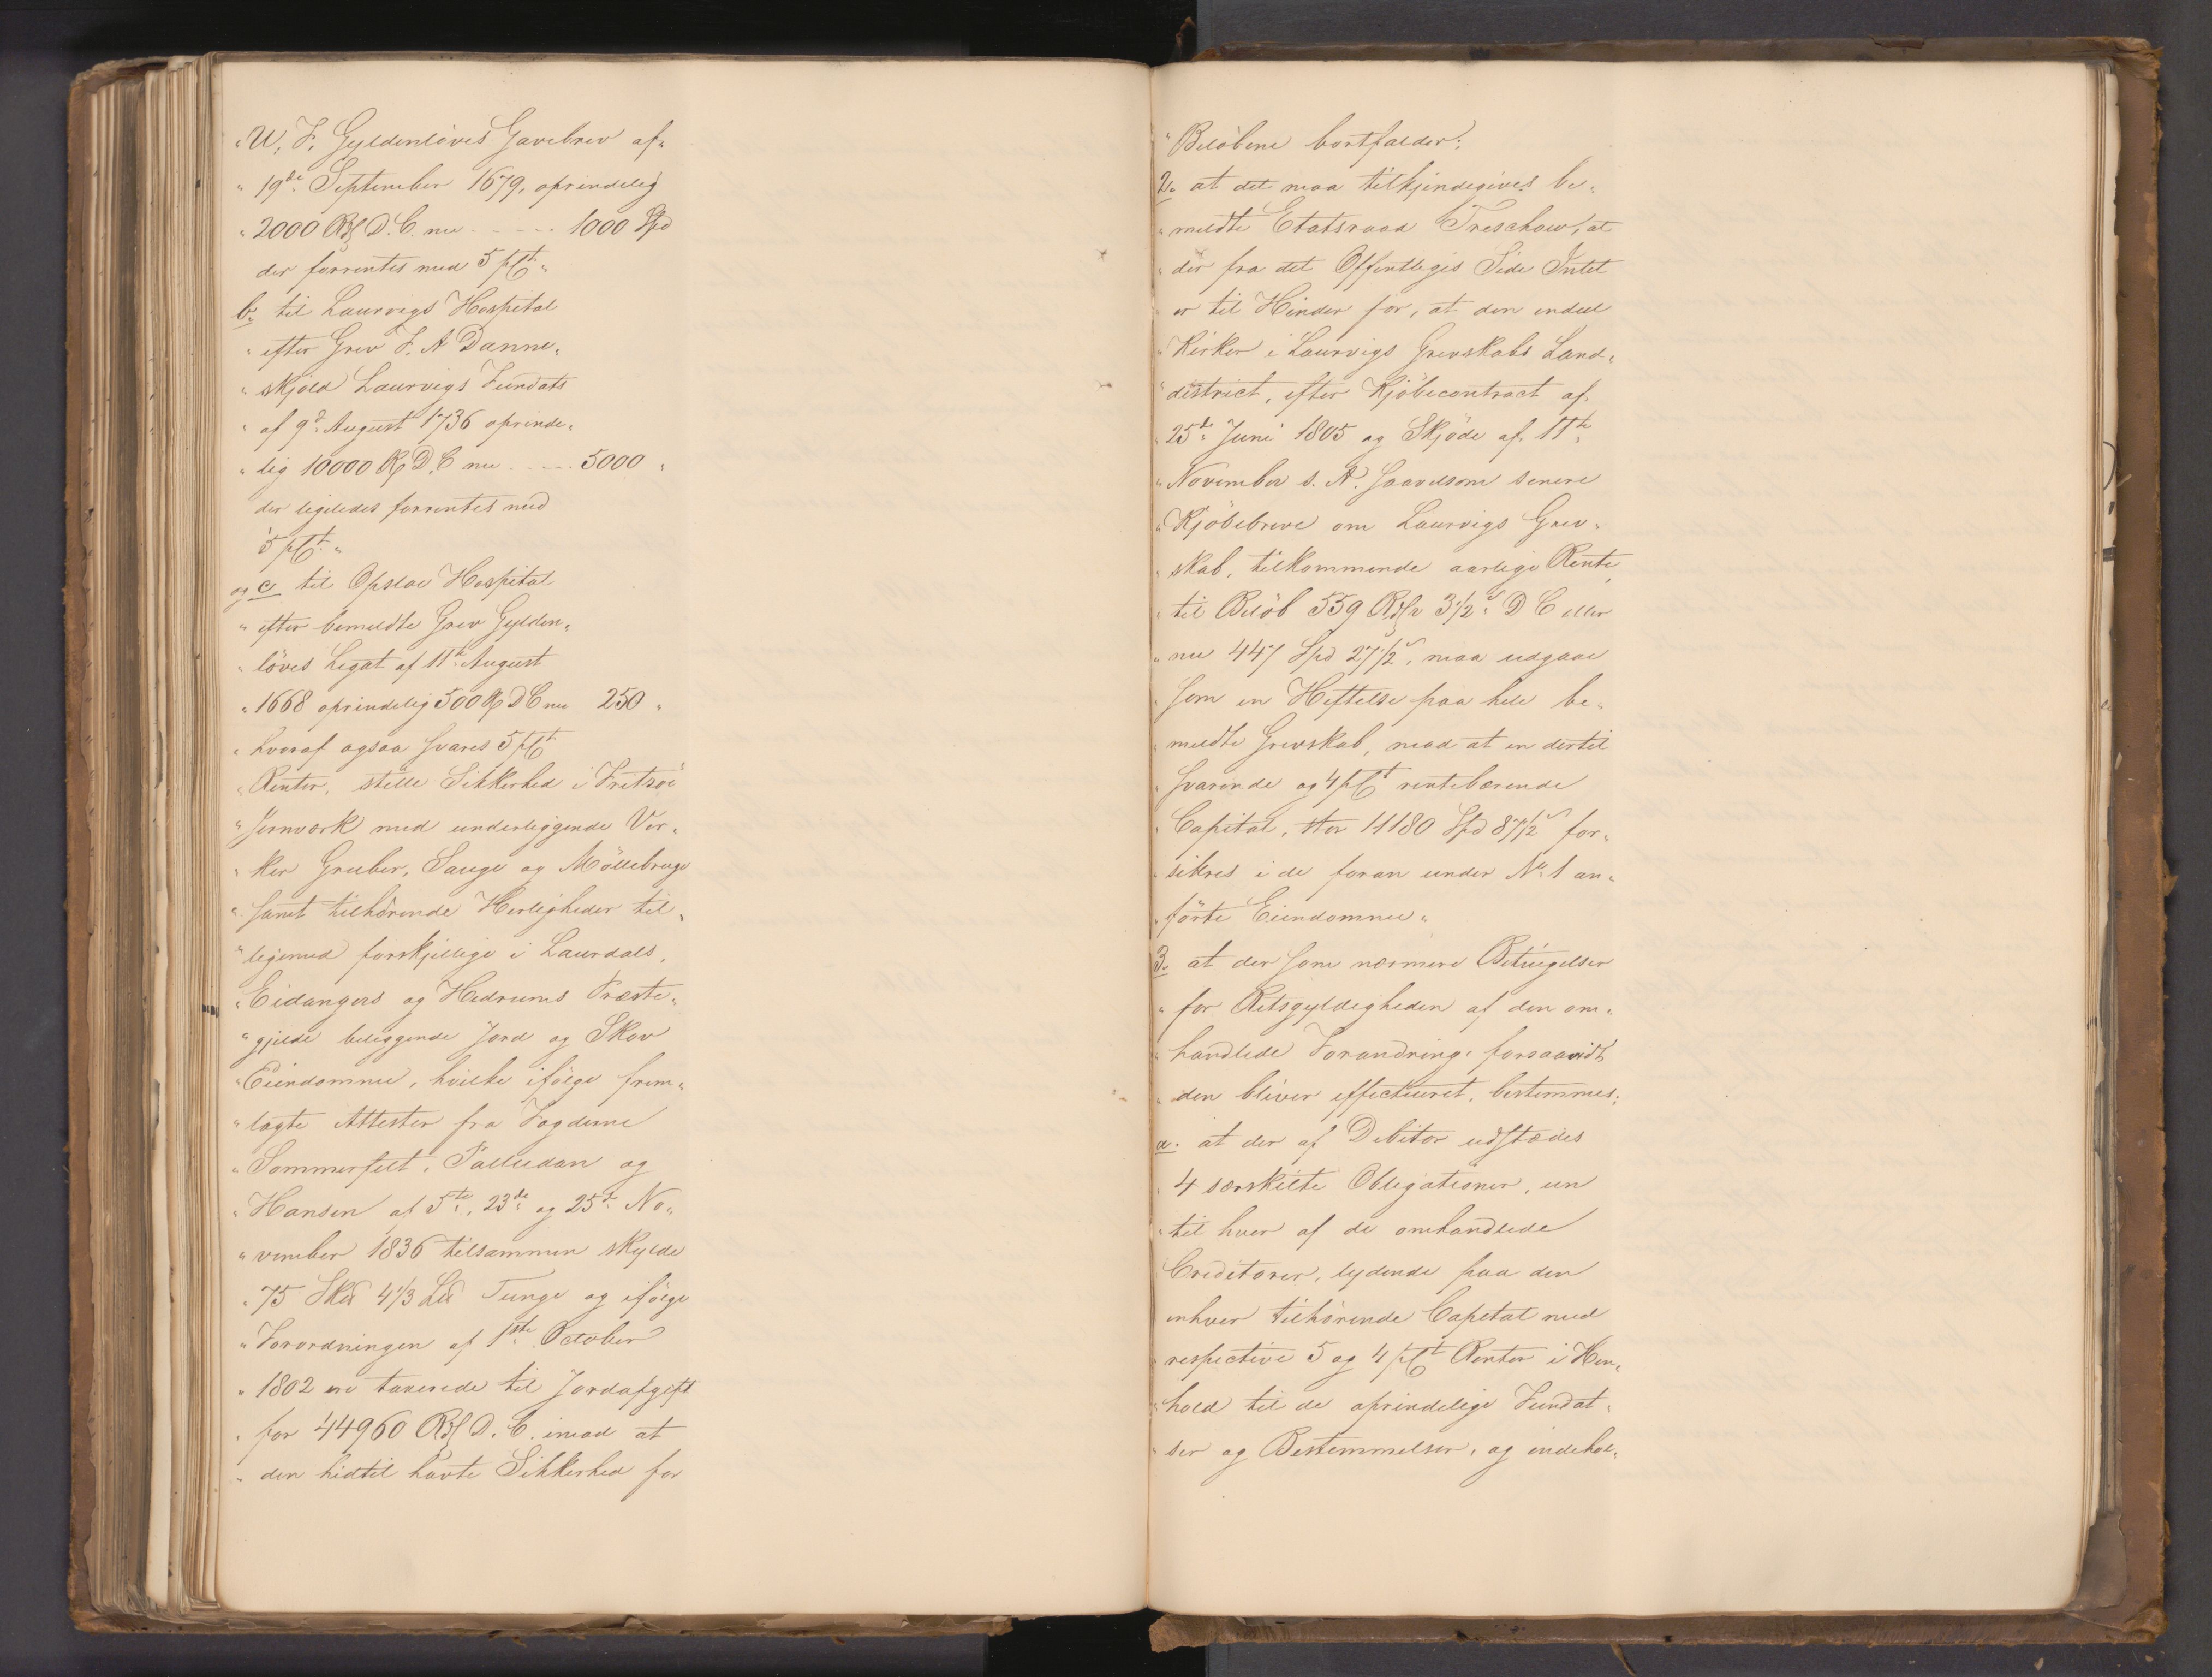 "U. F. Gyldenlöves Gavebrev af"
" 19de September 1679, oprindelig
" 2000 Rdl D. C. nu - - - - - 1000 Spd
der forrentes med 5 pCt "
b. til Laurvigs Hospital
" efter Grev F. A Danne"
" skjold Laurvigs Fundats
" af 9d August 1736 oprinde"
" lig 10000 R D. C nu - - - - 5000 "
der ligeledes forrentes med
5 pCt. "
og c til Opsloe Hospital
" efter bemeldte Grev Gylden"
" löves Legat af 11te August
" 1668 oprindelig 500 R D C nu 250 "
" hvoraf ogsaa svares 5 pCt
" Renter, stille Sikkerhed i Fritzöe
" Jernværk med underliggende Vær"
" ker Gruber, Sauge og Möllebruge
" samt tilhörende Herligheder til"
" ligemed forskjellige i Laurdals,
" Eidangers og Hedrums Præste"
" gjelde beliggende Jord og Skov
" Eiendomme, hvilke ifölge frem"
" lagte Attester fra Fogderne
" Sommerfelt, Palludan og
" Hansen af 5te, 23de og 25d No"
" vember 1836 tilsammen skylde
" 75 Skd 4 1/3 Ld Tunge og ifölge
" Forordningen af 1ste October
" 1802 ere taxerede til Jordafgift
" for 44960 Rdl D. C. imod at
" den hidtil havte Sikkerhed for
" Belöbene bortfalder:
2. at det maa tilkjendegives be"
" meldte Etatsraad Treschow, at
" der fra det Offentliges Side Intet
er til Hinder for, at den endeel
" Kirker i Laurvigs Grevskabs Land"
" district, efter Kjöbecontract af
" 25de Juni 1805 og Skjöde af 11te
" November s. A. saavelsom senere
" Kjöbebreve om Laurvigs Grev"
" skab, tilkommende aarlige Rente
" til Belöb 559 Rdlr 3 1/2 s D C eller
" nu 447 Spd 27 1/2 s, maa udgaae
" som en Heftelse paa hele be"
" meldte Grevskab, mod at en dertil
" svarende og 4 pCt rentebærende
" Capital, stor 11180 Spd 87 1/2 s for"
" sikres i de foran under No 1 an"
" förte Eiendomme "
3. at der som nærmere Betingelser
" for Retsgyldigheden af den om"
" handlede Forandring, forsaavidt
" den bliver effectueret, bestemmes:
a. at der af Debitor udstædes
" 4 særskilte Obligationer, een
" til hver af de omhandlede
" Creditorer, lydende paa den
enhver tilhörende Capital med
respective 5 og 4 pCt Renter i Hen"
" hold til de oprindelige Fundat"
" ser og Bestemmelser, og indehol"